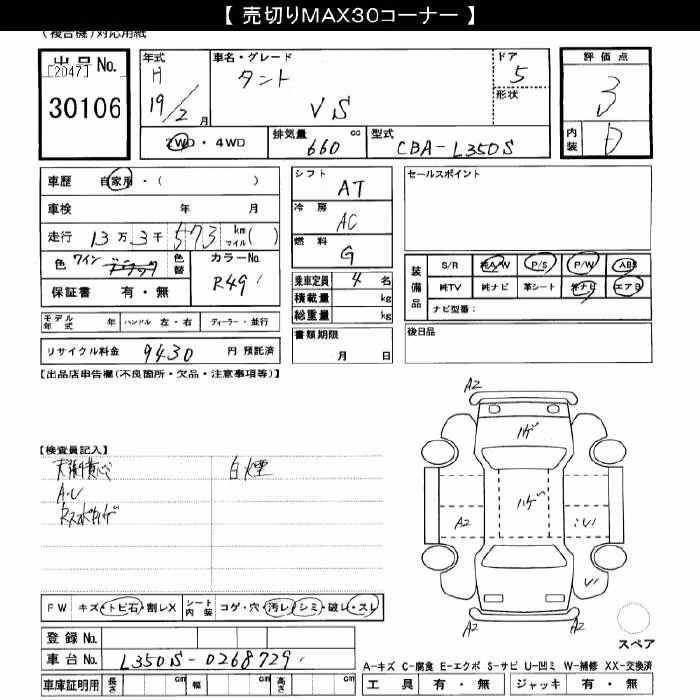 【 売切りMAX30コーナー 】
(複合機)対応用紙
出品No.
[2047]
30106
年式
H
19/2 月
車名・グレード
タント
VS
ドア
5
形状
評価点
3
内装
D
2WD・4WD
排気量 cc
660
型式
CBA-L350S
車歴 自家用・( )
車検 年 月
走行 13万3千573 km マイル( )
色 ワイン ブラック
色替
カラーNo.
R49
保証書 有・無
シフト
AT
冷房
AC
燃料
G
乗車定員 4 名
積載量 kg
総重量 kg
書類期限
月 日
セールスポイント
装備品
S/R 純A/W P/S P/W ABS
純TV 純ナビ 革シート 社ナビ エアB
ナビ型番:
後日品
モデル年式 年 ハンドル 左・右 ディーラー・並行
リサイクル料金 9430 円 預託済
【出品店申告欄(不良箇所・欠品・注意事項等)】
【検査員記入】
白煙
A・U
F W キズ・トビ石・割レX シート内装 コゲ・穴・汚レ・シミ・破レ・スレ
登録 No.
車台 No. L350S-0268729
車庫証明用 長さ cm 幅 cm 高さ cm
A2
ハゲ
ハゲ
A2
A2
スペア
A-キズ C-腐食 E-エクボ S-サビ U-凹ミ W-補修 XX-交換済
工具 有・無 ジャッキ 有・無